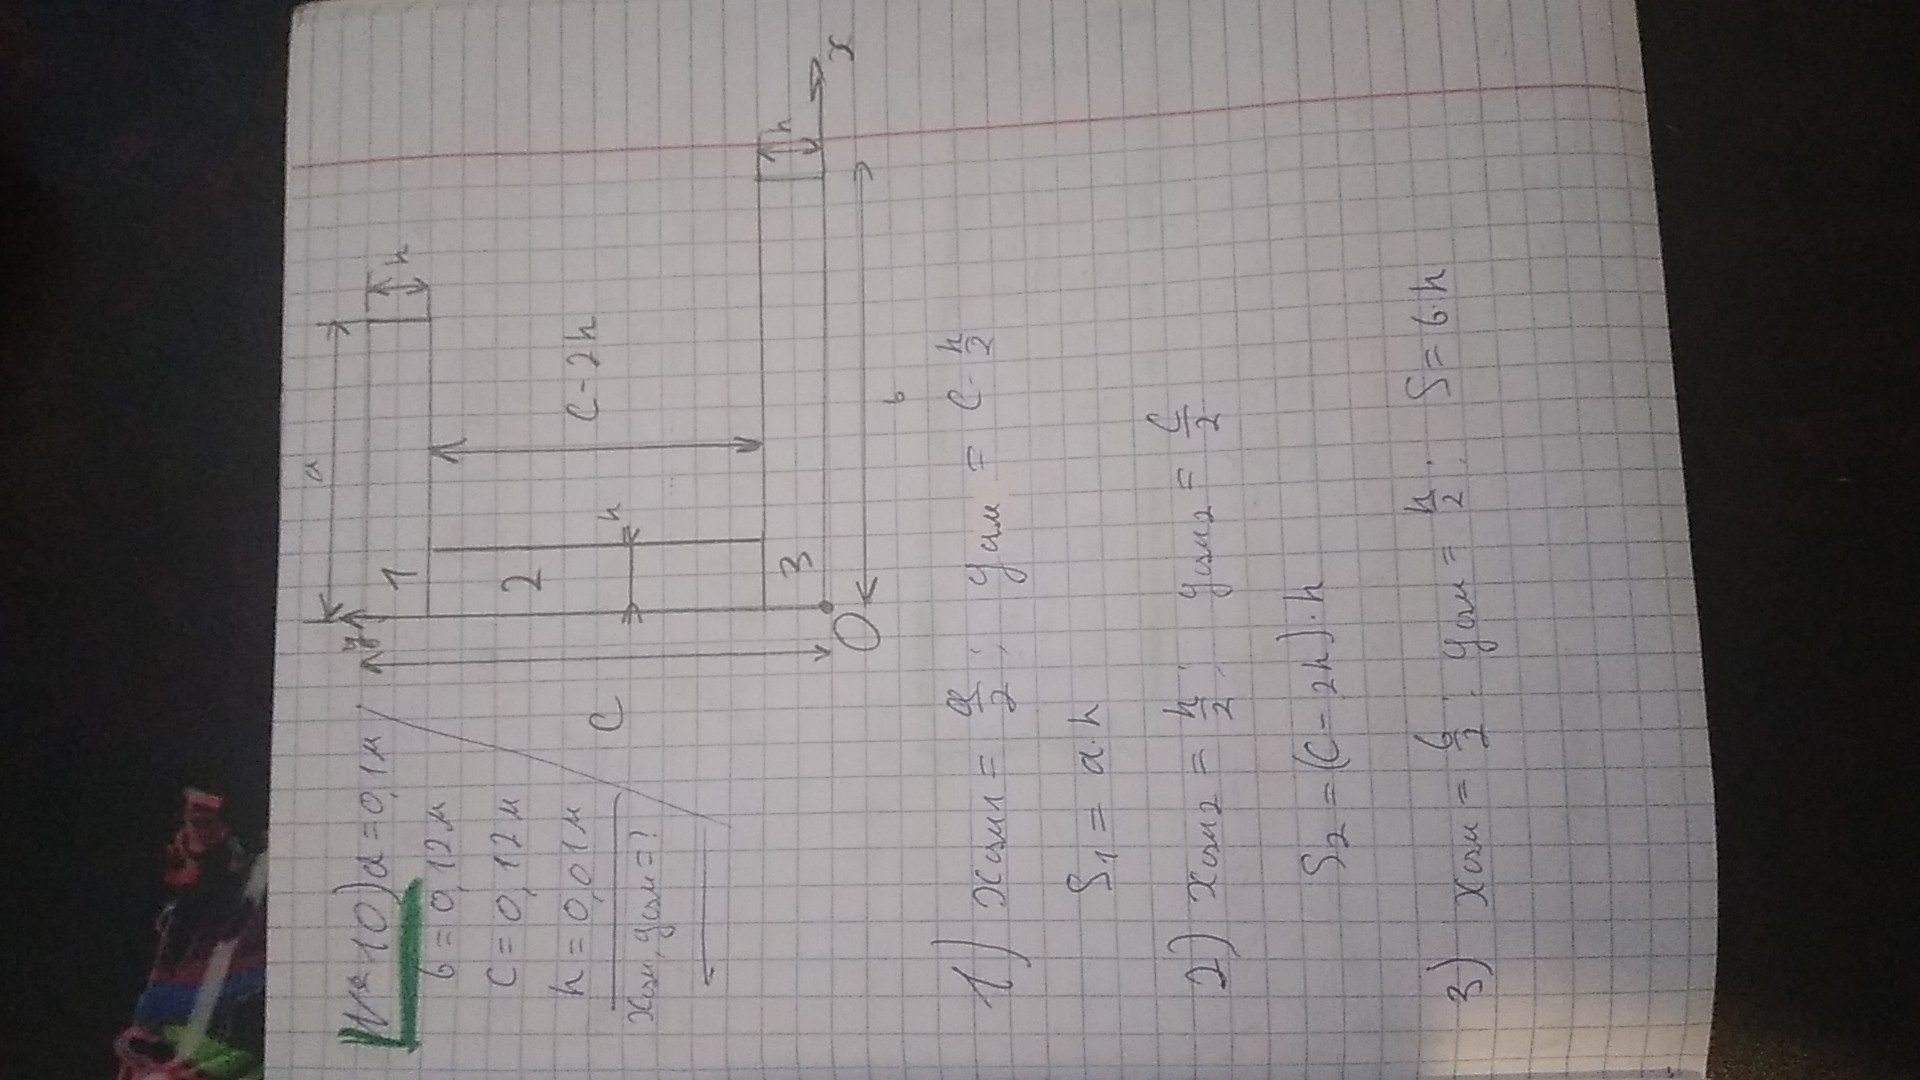 № 10) a = 0,1 м
b = 0,12 м
c = 0,12 м
h = 0,01 м
xсм, yсм = ?
a
y
1
h
2
c
h
c - 2h
3
h
O
x
b
1) xсм1 = a/2 ; yсм = c - h/2
S1 = a·h
2) xсм2 = h/2 ; yсм2 = c/2
S2 = (c - 2h)·h
3) xсм = b/2 ; yсм = h/2 ; S = b·h